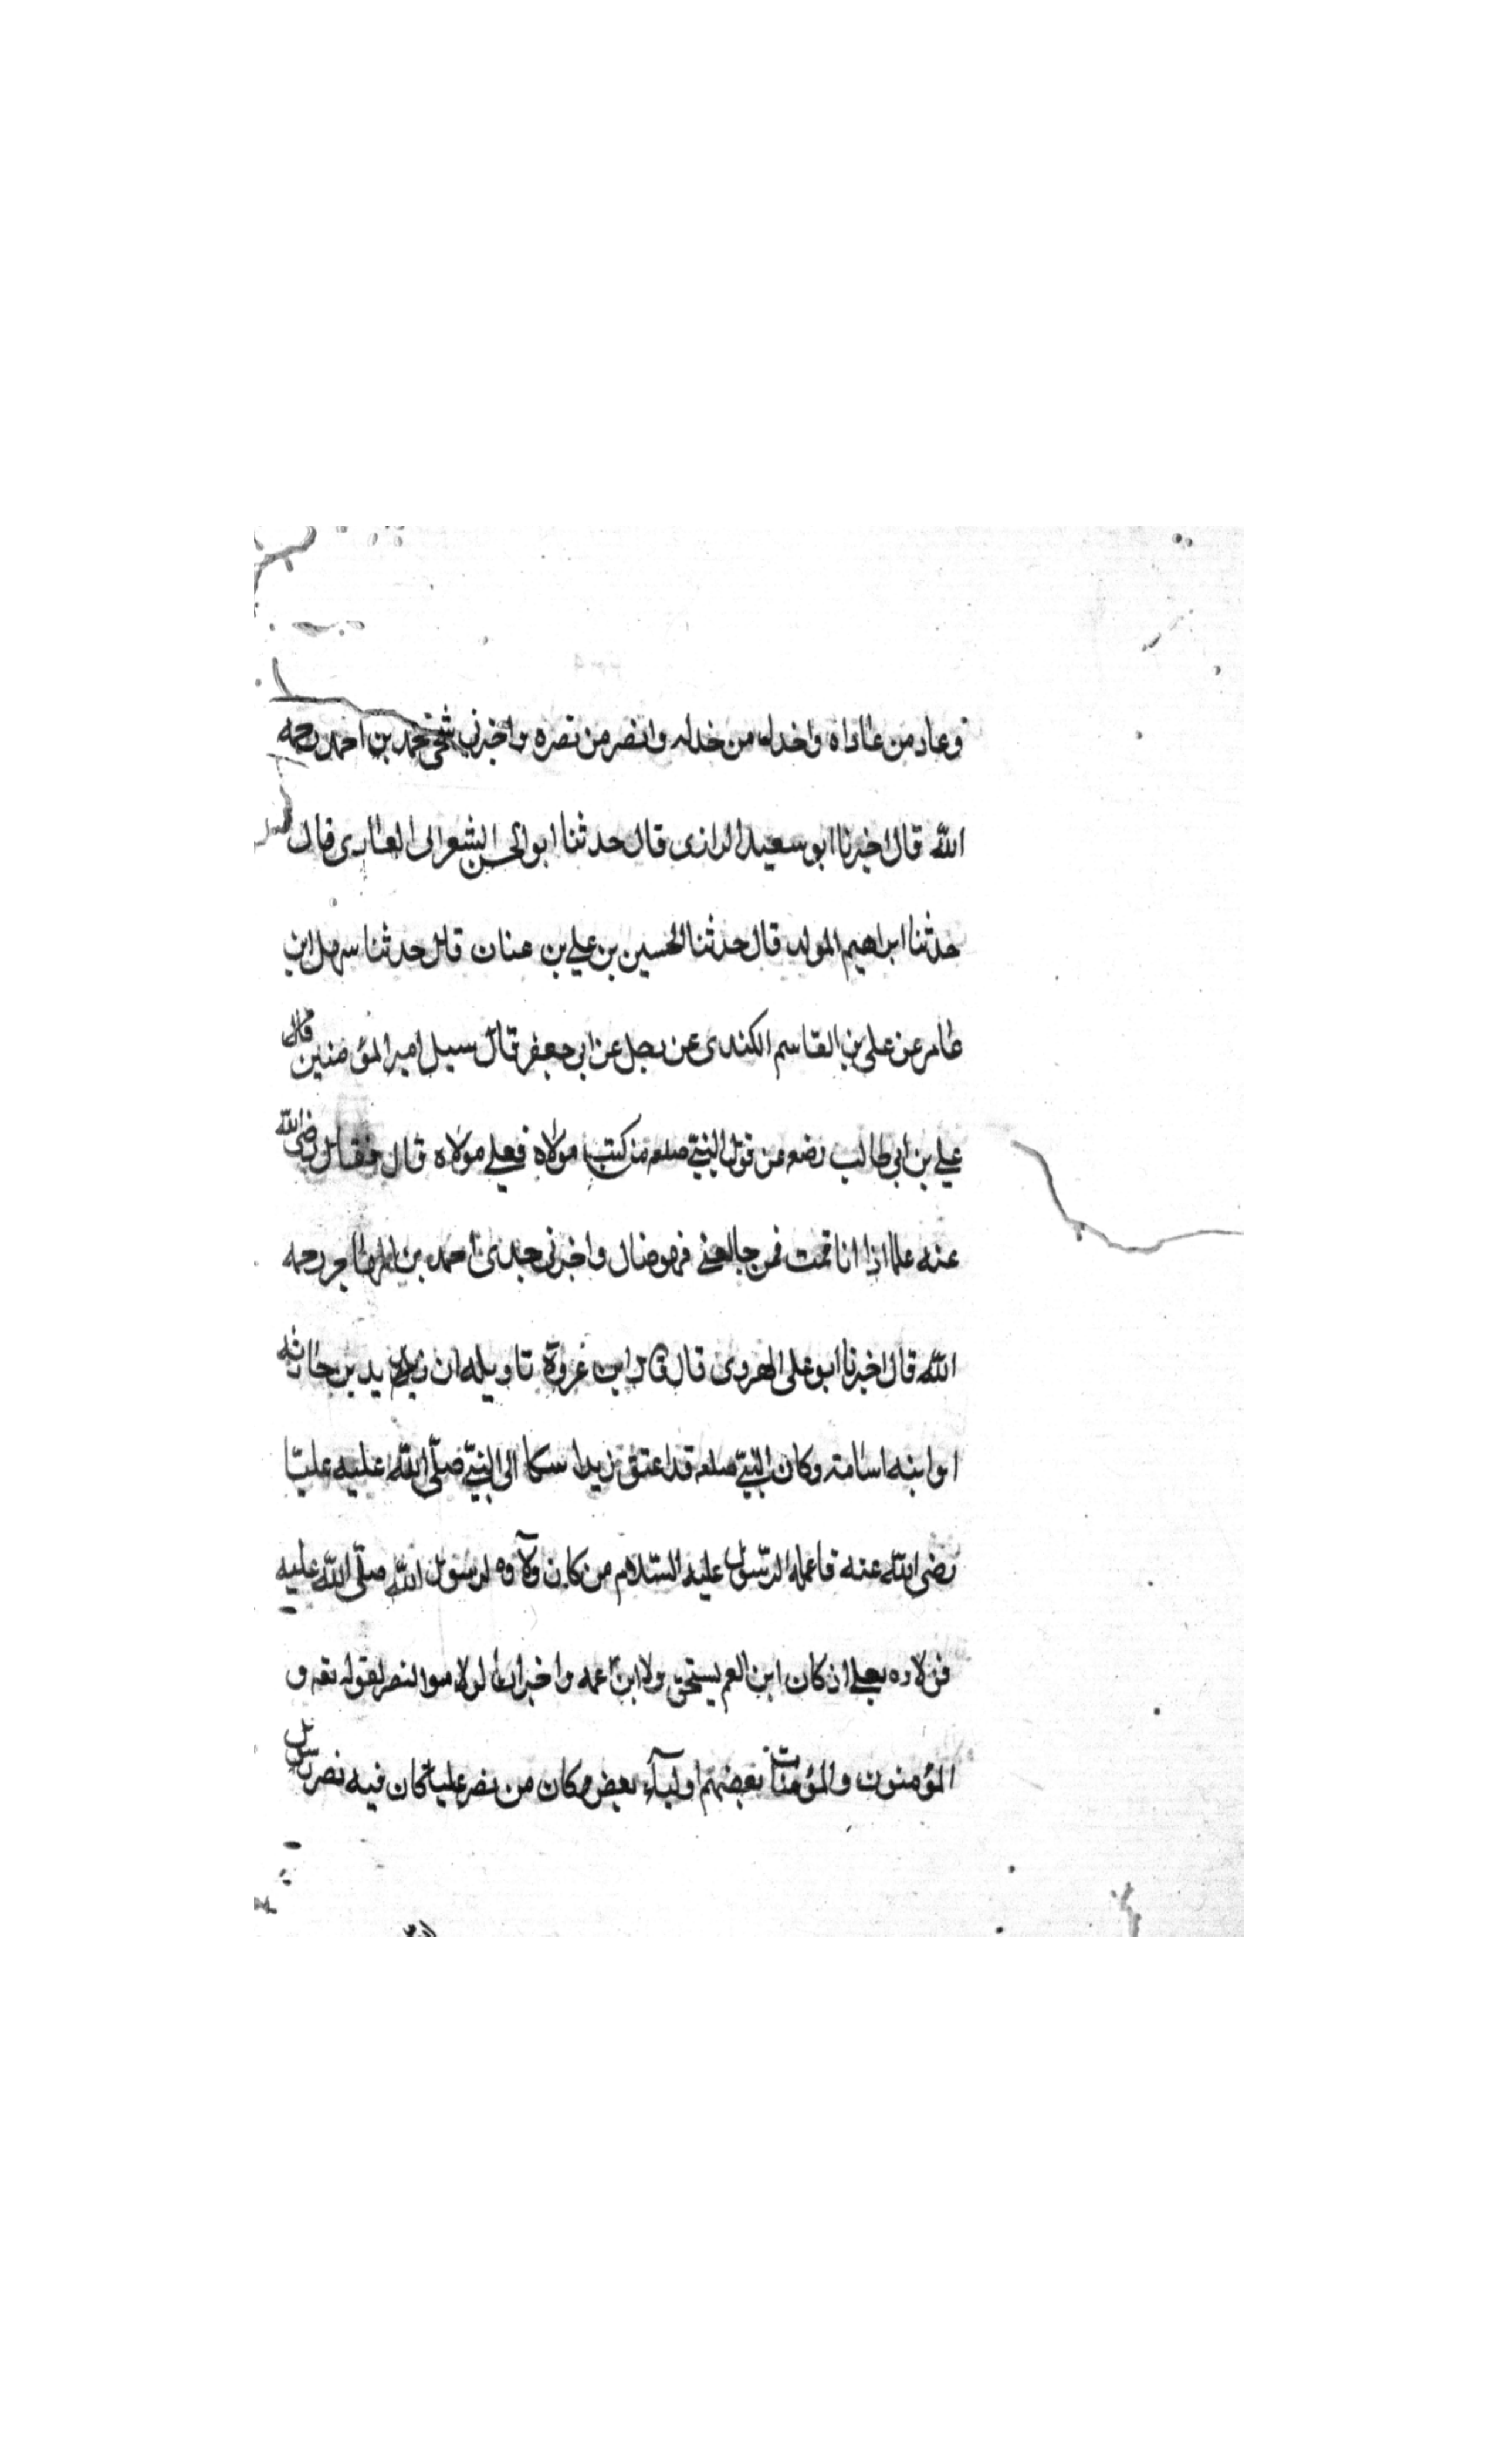 وعاد من عاداه واخذل من خذله وانصر من نصره واخبرني شيخي محمد بن احمد رحمه
الله قال اخبرنا ابو سعيد الرازى قال حدثنا ابو الحسن الشعرانى العارى قال
حدثنا ابراهيم المولد قال حدثنا الحسين بن علي بن عنان قال حدثنا سهل ابن
عامر عن على بن القاسم الكندى عن رجل عن ابى جعفر قال سيل امير المؤمنين قال
علي بن ابي طالب رضه عن قول النبيّ صلعم من كنت مولاه فعلي مولاه قال فقال رضى الله
عنه علما اذا انا قمت فمن خالفنى فهو ضال واخبرنى جدى احمد بن المهاجر رحمه
الله قال اخبرنا ابو على الهروى قال قال ابن عروة تاويله ان زيد بن حارثه
ابو ابنه اسامة وكان النبيّ صلعم قد اعتق زيدا شكا الى النبيّ صلّى الله عليه عليّا
رضى الله عنه فاعمله الرّسول عليه السّلام من كان ولآوه لرسول الله صلّى الله عليه
فولاوه لعلي اذ كان ابن العم يستحق ولا ابن عمه واخبر ان الولا هو النصر لقوله تعه و
المؤمنون والمؤمنات بعضهم اوليآء بعض وكان من نصر عليا كان فيه نصر رسول